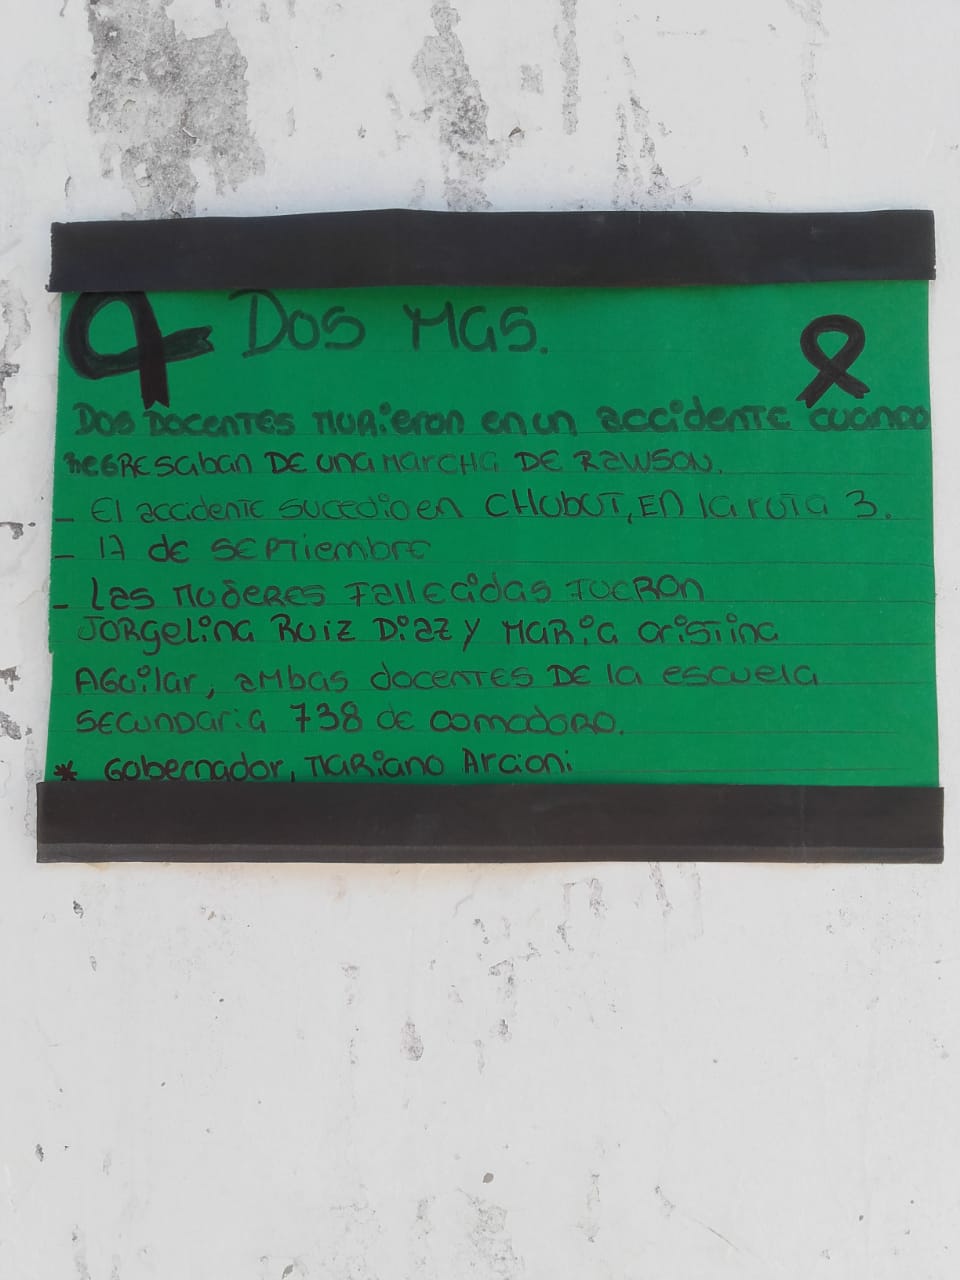 DOS MAS.
DOS DOCENTES MURIERON en un accidente cuando
REGRESaban DE una MARCHA DE RAWSON.
- El accidente sucedio en CHUBUT, EN la ruta 3.
- 17 de SEPTiembre
- Las MUJERES FallEcidas FUERON
JORGelina Ruiz Diaz y MARia cristina
AGuilar, ambas docentes DE la escuela
SEcunDaria 738 de comodoro.
* Gobernador, MARiano Arcioni